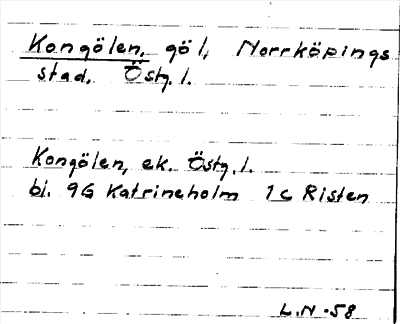 Kongölen, göl, Norrköpings
stad. Östg. l.
Kongölen, ek. Östg. l.
bl. 9G Katrineholm 1c Risten
L.N -58